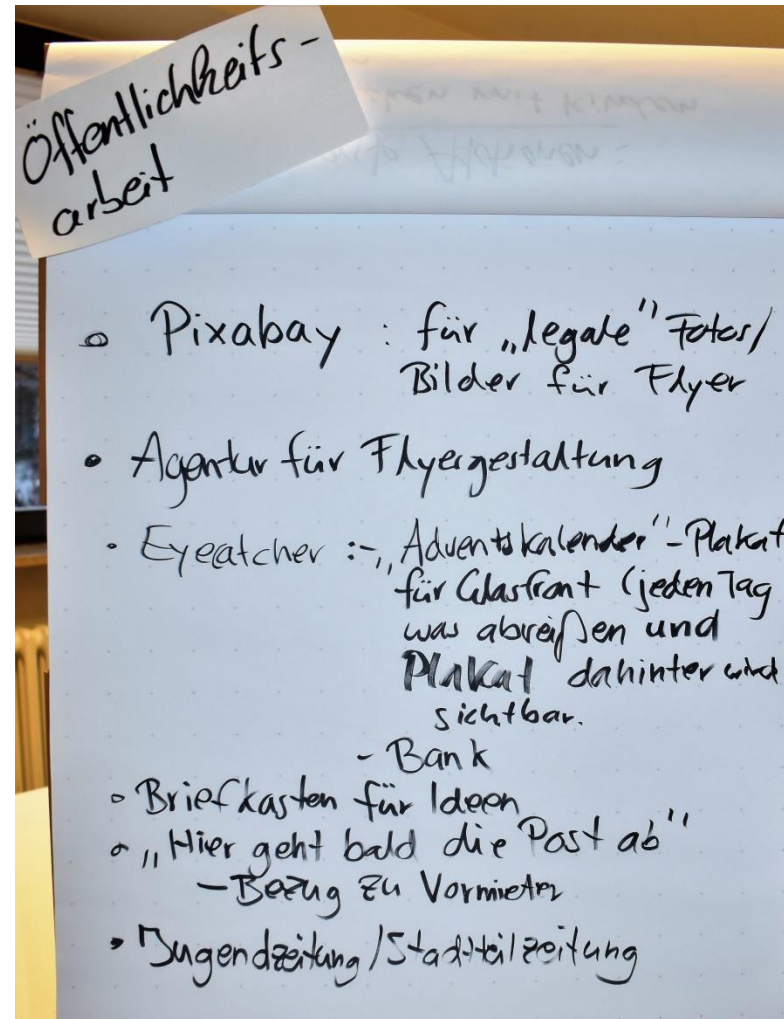 Öffentlichkeits-
arbeit
mit Kindern
Aktionen:
o Pixabay : für „legale" Fotos/
Bilder für Flyer
• Agentur für Flyergestaltung
• Eyecatcher :-„Adventskalender"-Plakat
für Glasfront (jeden Tag
was abreißen und
Plakat dahinter wird
sichtbar.
- Bank
o Briefkasten für Ideen
o „Hier geht bald die Post ab"
- Bezug zu Vormieter
• Jugendzeitung/Stadtteilzeitung